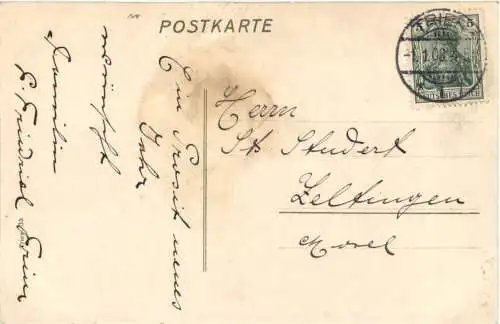 POSTKARTE
TRIER
1.08
5 5
DEUTSCHES REICH
Herrn
St. Studert
Zeltingen
Mosel
Ein Prosit neues
Jahr
wünscht
Familie
Friedrich
Trier